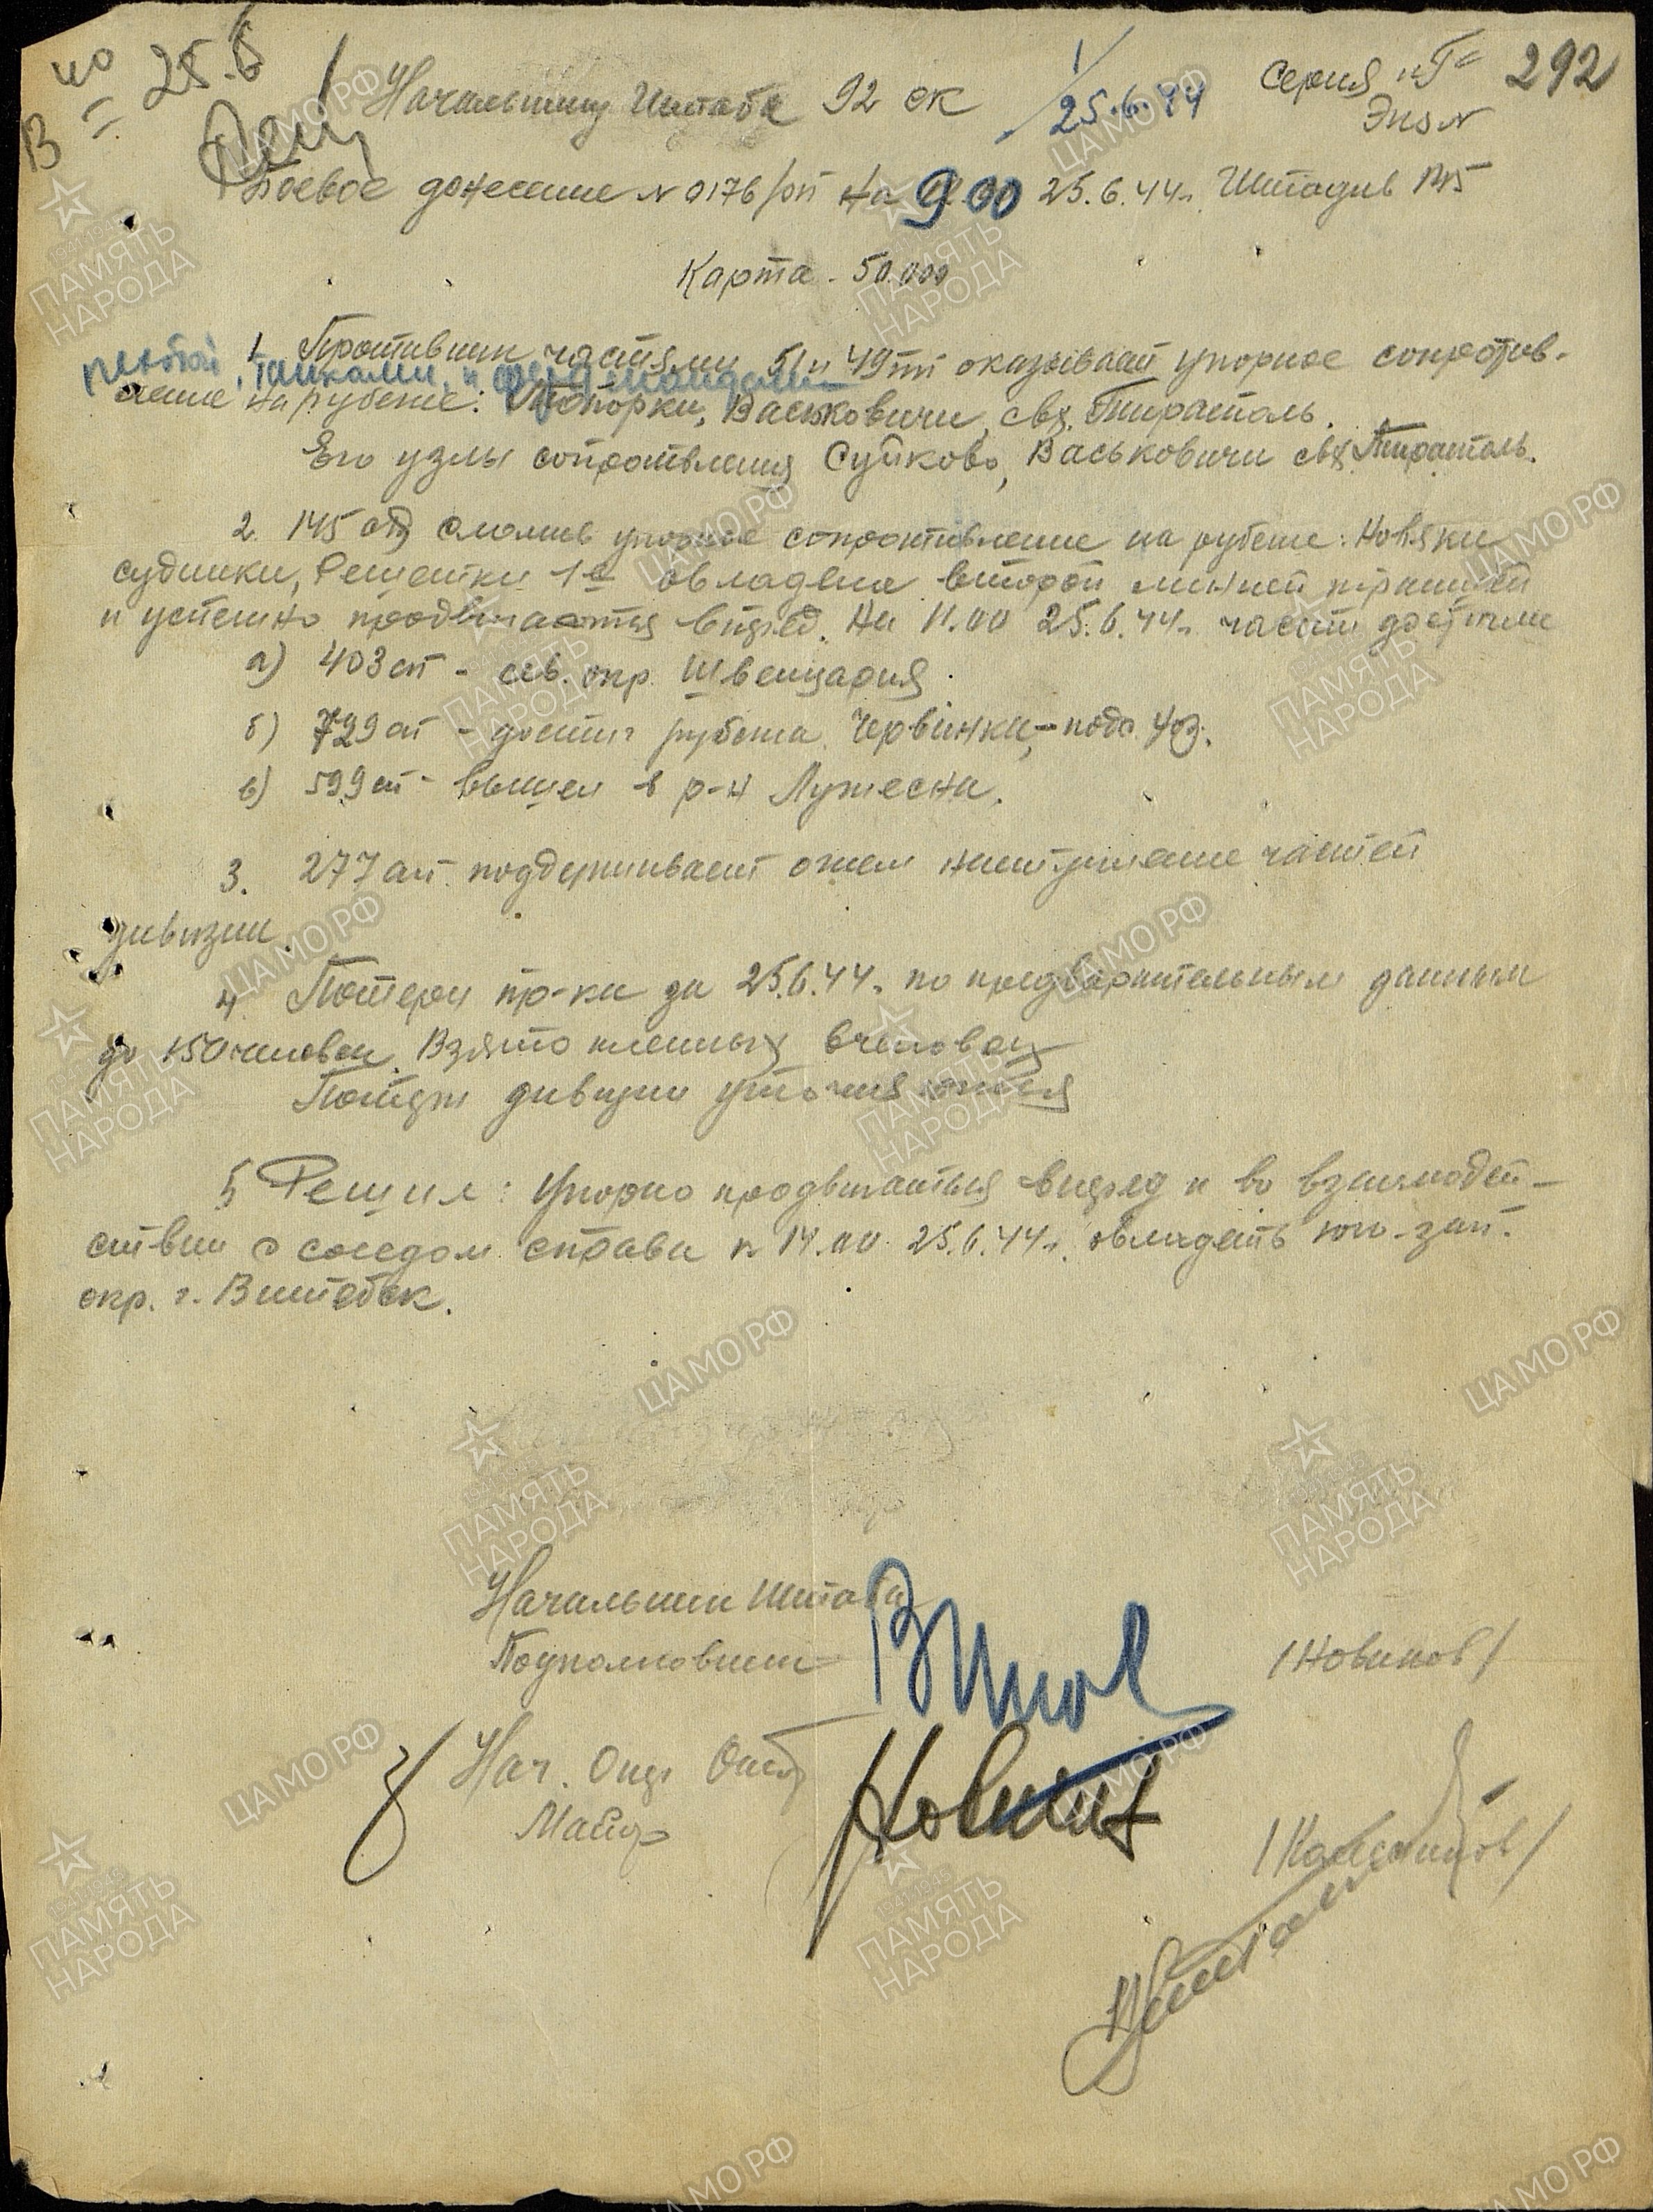 292
Серия "Г"
Экз №
25.6
Начальнику Штаба 92 ск
25.6.44
Боевое донесение № 0176/оп на 9.00 25.6.44г. Штадив 145
Карта - 50.000
1. Противник частями 51 и 49 пп оказывает упорное сопротив-
пехотой, танками, и фердинандами
ление на рубеже: Топорки, Васьковичи, свх. Тирасполь.
Его узлы сопротивления Суйково, Васьковичи свх. Тирасполь.
2. 145 сд сломив упорное сопротивление на рубеже: Новяки
Судники, Решетки 1е овладела второй линией траншей
и успешно продвигается вперед. На 11.00 25.6.44г. части достигли
а) 403 сп - сев. окр. Швейцария.
б) 729 сп - достиг рубежа Червинки,
в) 599 сп - вышел в р-н Лужесна.
3. 277 ап поддерживает огнем наступление частей
дивизии.
4. Потери пр-ка за 25.6.44г. по предварительным данным
до 150 человек. Взято пленных человек
Потери дивизии уточняются
5 Решил: Упорно продвигаться вперед и во взаимодей-
ствии с соседом справа к 14.00 25.6.44г. овладеть юго-зап.
окр. г. Витебск.
Начальник Штаба
Подполковник /Новиков/
Нач. Опер Отд
Майор
ЦАМО РФ
ПАМЯТЬ НАРОДА